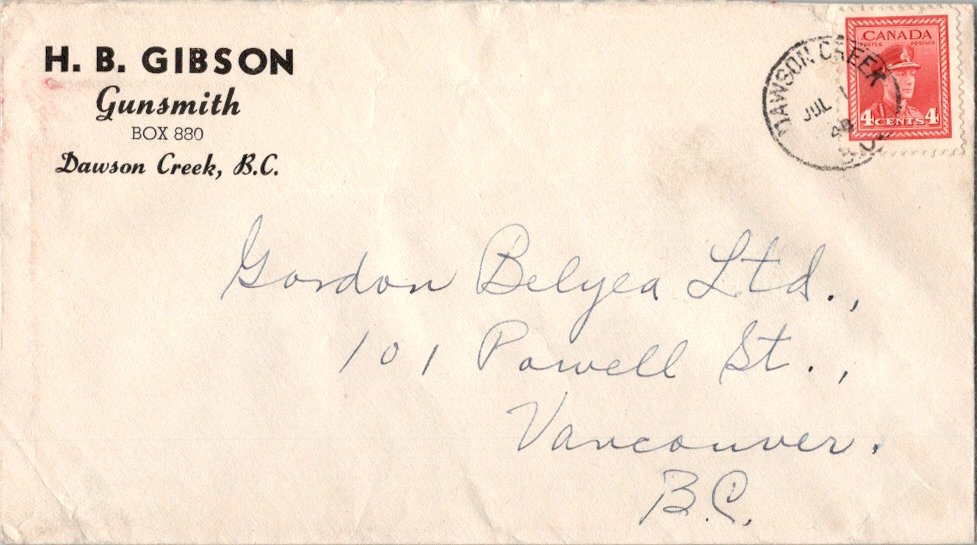 H. B. GIBSON
Gunsmith
BOX 880
Dawson Creek, B.C.
CANADA
POSTES POSTAGE
4 CENTS 4
DAWSON CREEK
JUL 1
48
B.C.
Gordon Belyea Ltd.,
101 Powell St.,
Vancouver.
B.C.